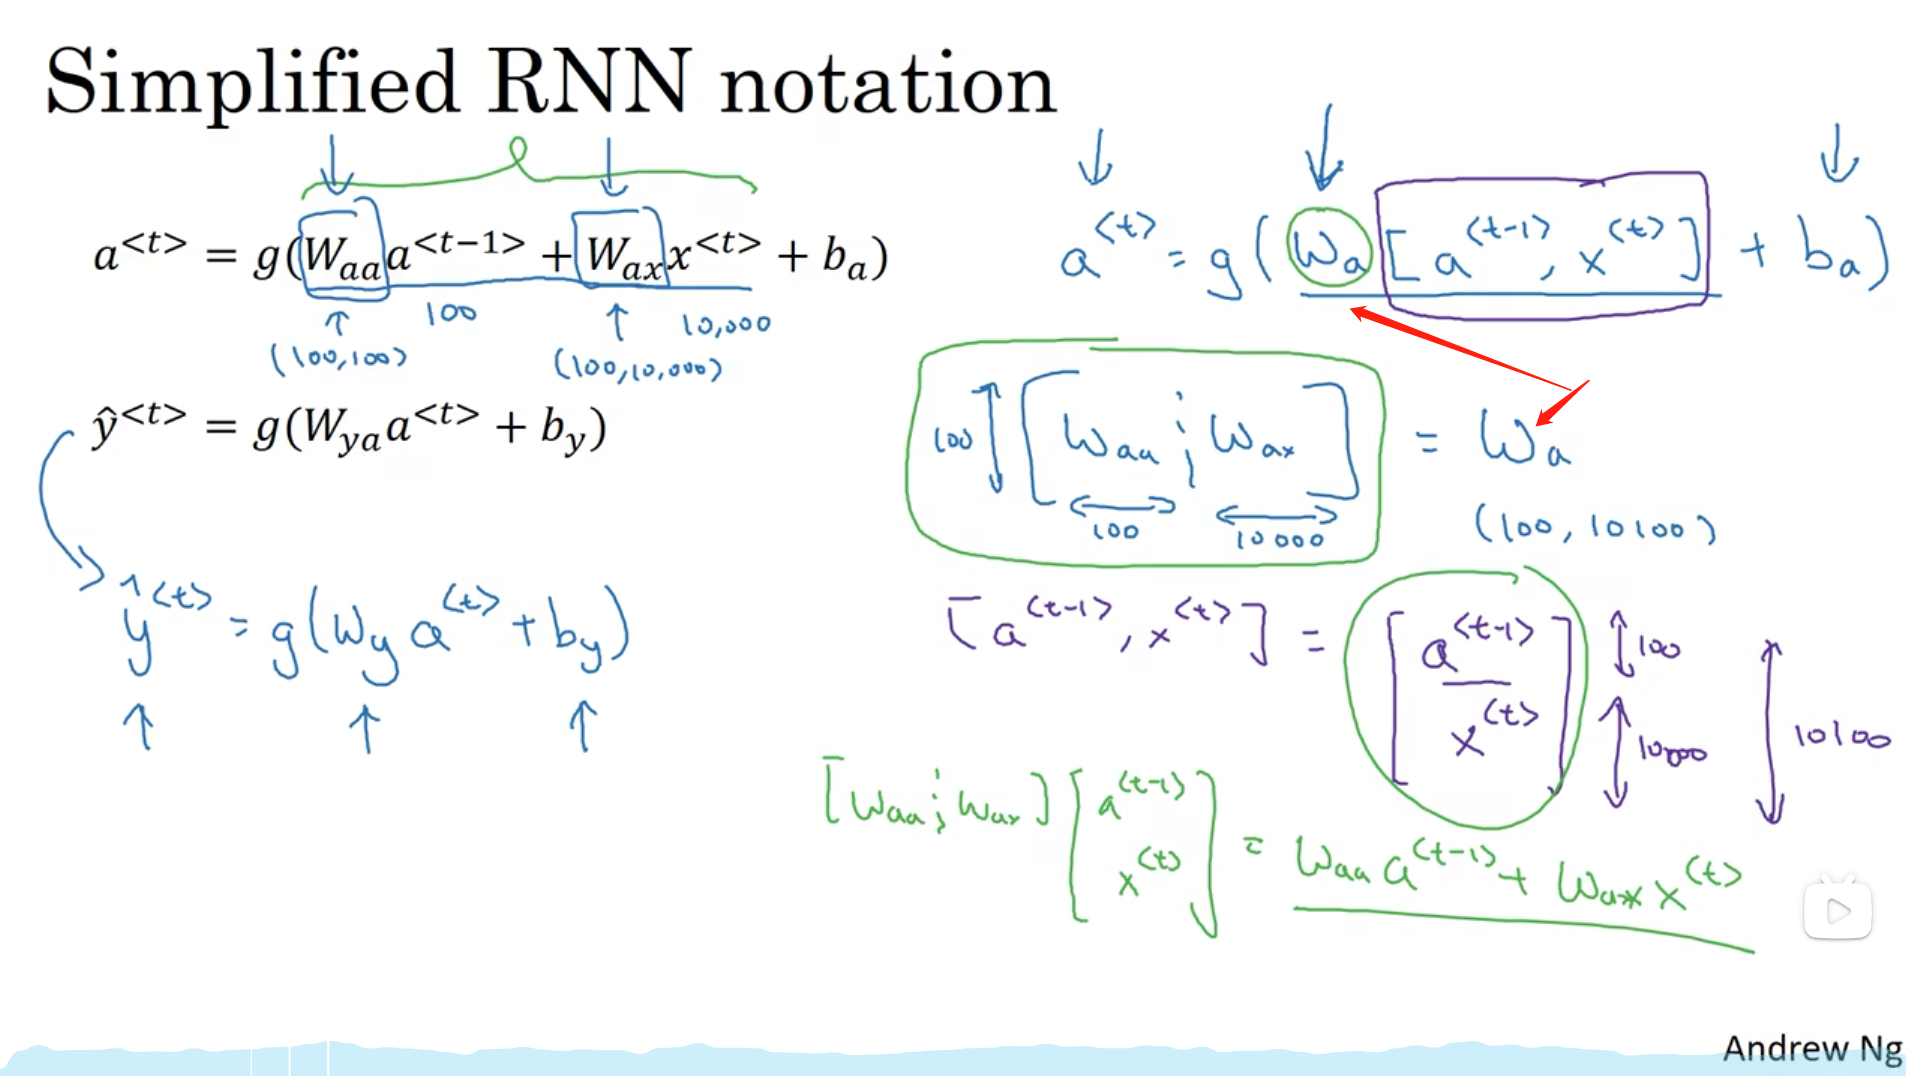 Simplified RNN notation
a<t> = g(Waa a<t−1> + Wax x<t> + ba)
100
10,000
(100,100)
(100,10,000)
ŷ<t> = g(Wya a<t> + by)
ŷ<t> = g(Wy a<t> + by)
a<t> = g(Wa[a<t-1>, x<t>] + ba)
100 [Waa ¦ Wax] = Wa
100 10000
(100, 10100)
[a<t-1>, x<t>] = [a<t-1> 100
x<t>] 10000 10100
[Waa ¦ Wax] [a<t-1>
x<t>] = Waa a<t-1> + Wax x<t>
Andrew Ng